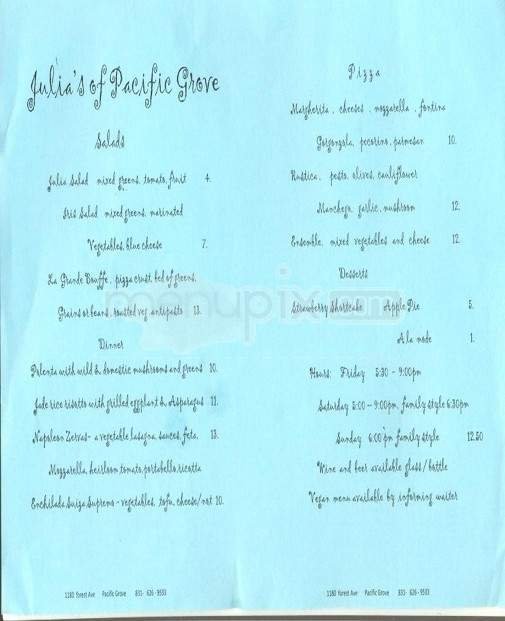 Julia's of Pacific Grove
Salads
Julia Salad mixed greens, tomato, fruit 4.
Iris Salad mixed greens, marinated
Vegetables, blue cheese 7.
La Grande Bouffe, pizza crust, bed of greens,
Grains or beans, roasted veg antipasto 13.
Dinner
Polenta with wild & domestic mushrooms and greens 10.
Jade rice risotto with grilled eggplant & Asparagus 11.
Napoleon Zervas- a vegetable lasagna, sauces, feta, 13.
Mozzarella, heirloom tomato, portabello, ricotta
Enchilada Suiza Supremo - vegetables, tofu, cheese/not 10.
1180 Forest Ave Pacific Grove 831- 626 - 9533
Pizza
Margherita, cheeses, mozzarella, fontina
Gorgonzola, pecorino, parmesan 10.
Rustica, pesto, olives, cauliflower
Manchego, garlic, mushroom 12.
Ensemble, mixed vegetables and cheese 12
Desserts
Strawberry Shortcake Apple Pie 5.
A la mode 1.
Hours: Friday 5:30 - 9:00pm
Saturday 5:00 - 9:00pm, family style 6:30pm
Sunday 6:00pm family style 12.50
Wine and beer available glass / bottle
Vegan menu available by informing waiter
1180 Forest Ave Pacific Grove 831- 626 - 9533
menupix.com